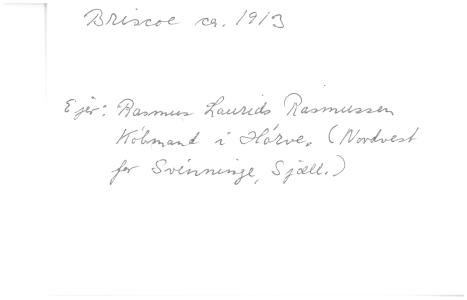 Briscoe ca. 1913
Ejer: Rasmus Laurids Rasmussen
Købmand i Hørve. (Nordvest
for Svinninge, Sjæll.)